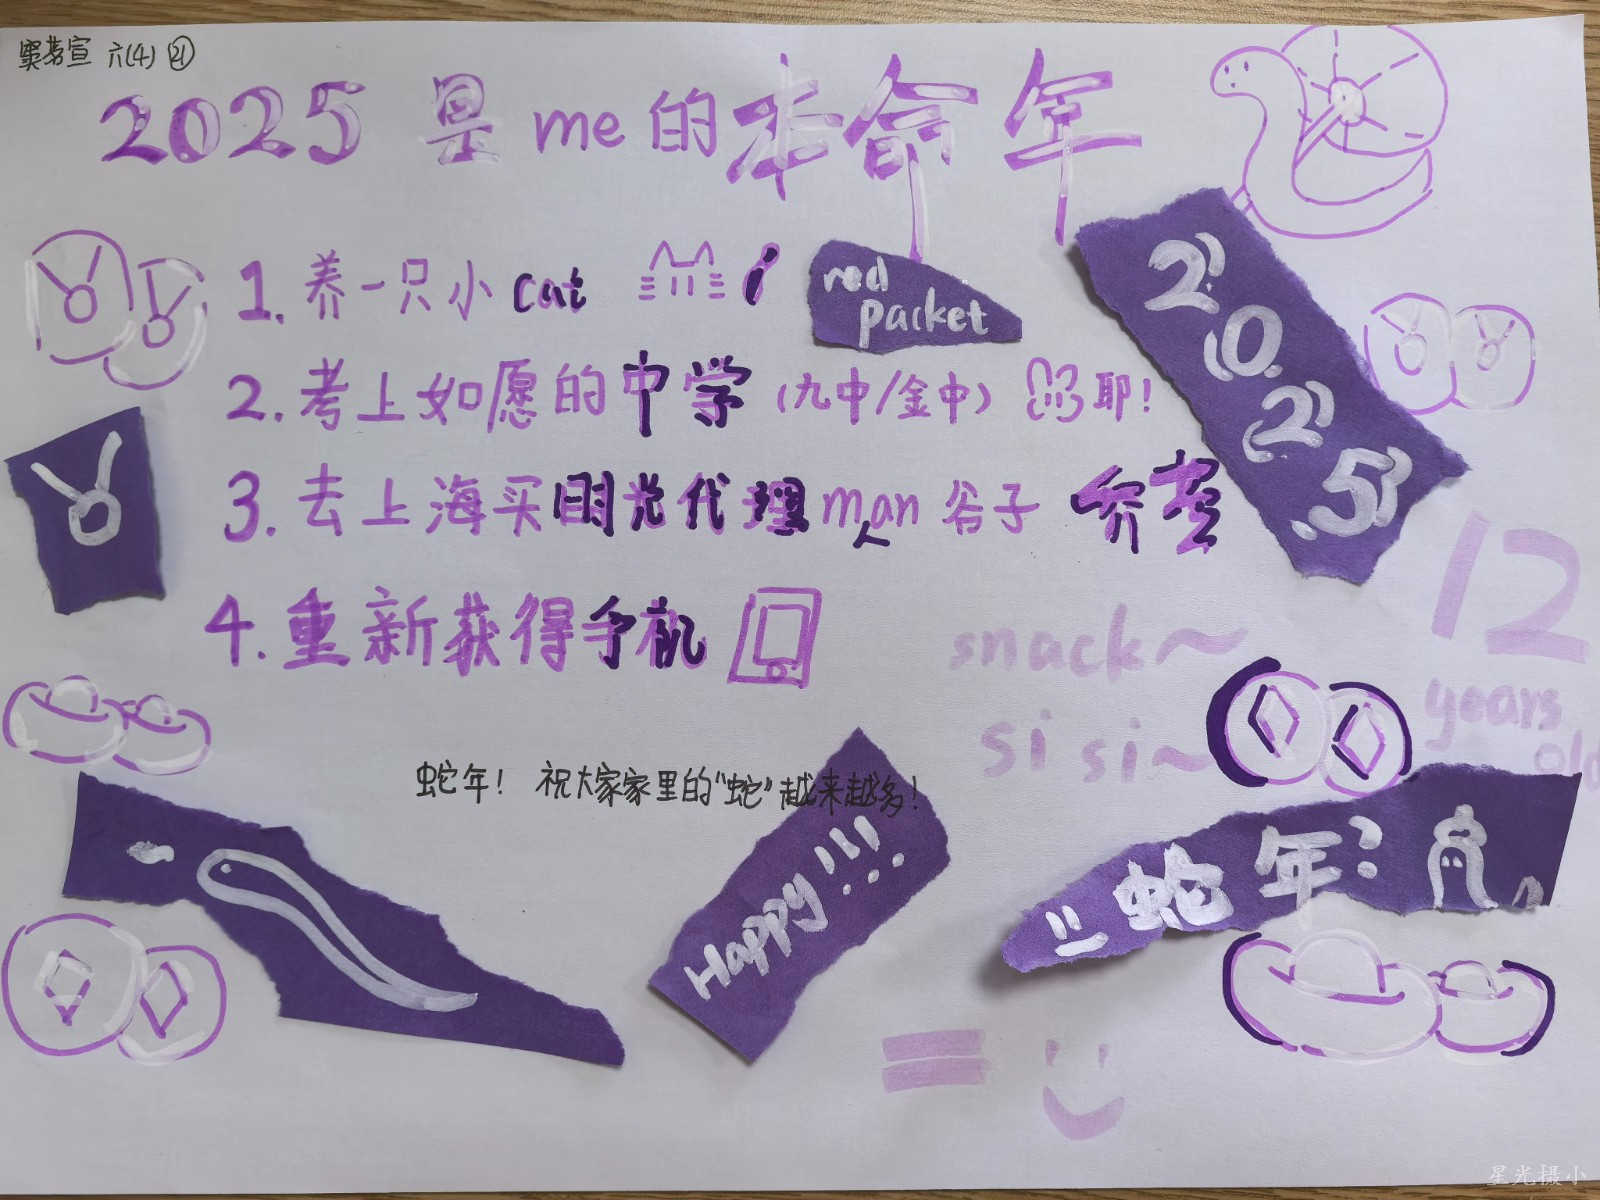 六(4) 21
2025 是 me 的本命年
1. 养一只小 cat
red
packet
2. 考上如愿的中学 (九中/金中) 耶!
3. 去上海买时光代理man人谷子
4. 重新获得手机
2025
12
years
old
snack~
si si~
蛇年! 祝大家家里的“蛇”越来越多!
Happy!!!
蛇年:
星光摄小